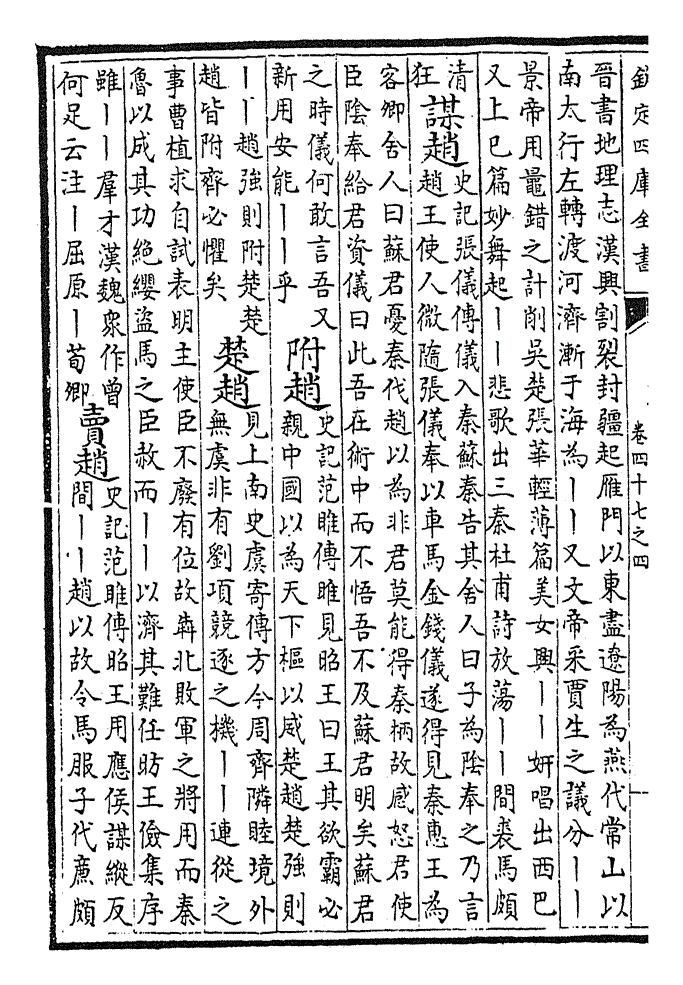 欽定四庫全書 卷四十七之四
晉書地理志漢興割裂封疆起雁門以東盡遼陽為燕代常山以
南太行左轉渡河濟漸于海為丨丨又文帝采賈生之議分丨丨
景帝用鼂錯之計削吳楚張華輕薄篇美女興丨丨妍唱出西巴
又上巳篇妙舞起丨丨悲歌出三秦杜甫詩放蕩丨丨間裘馬頗
清
狂
謀趙
史記張儀傳儀入秦蘇秦告其舍人曰子為陰奉之乃言
趙王使人微隨張儀奉以車馬金錢儀遂得見秦惠王為
客卿舍人曰蘇君憂秦伐趙以為非君莫能得秦柄故感怒君使
臣陰奉給君資儀曰此吾在術中而不悟吾不及蘇君明矣蘇君
之時儀何敢言吾又
新用安能丨丨乎
附趙
史記范雎傳雎見昭王曰王其欲霸必
親中國以為天下樞以威楚趙楚強則
丨丨趙強則附楚楚
趙皆附齊必懼矣
楚趙
見上南史虞寄傳方今周齊隣睦境外
無虞非有劉項競逐之機丨丨連從之
事曹植求自試表明主使臣不廢有位故奔北敗軍之將用而秦
魯以成其功絕纓盜馬之臣赦而丨丨以濟其難任昉王儉集序
雖丨丨羣才漢魏衆作曾
何足云注丨屈原丨荀卿
賣趙
史記范雎傳昭王用應侯謀縱反
間丨丨趙以故令馬服子代廉頗